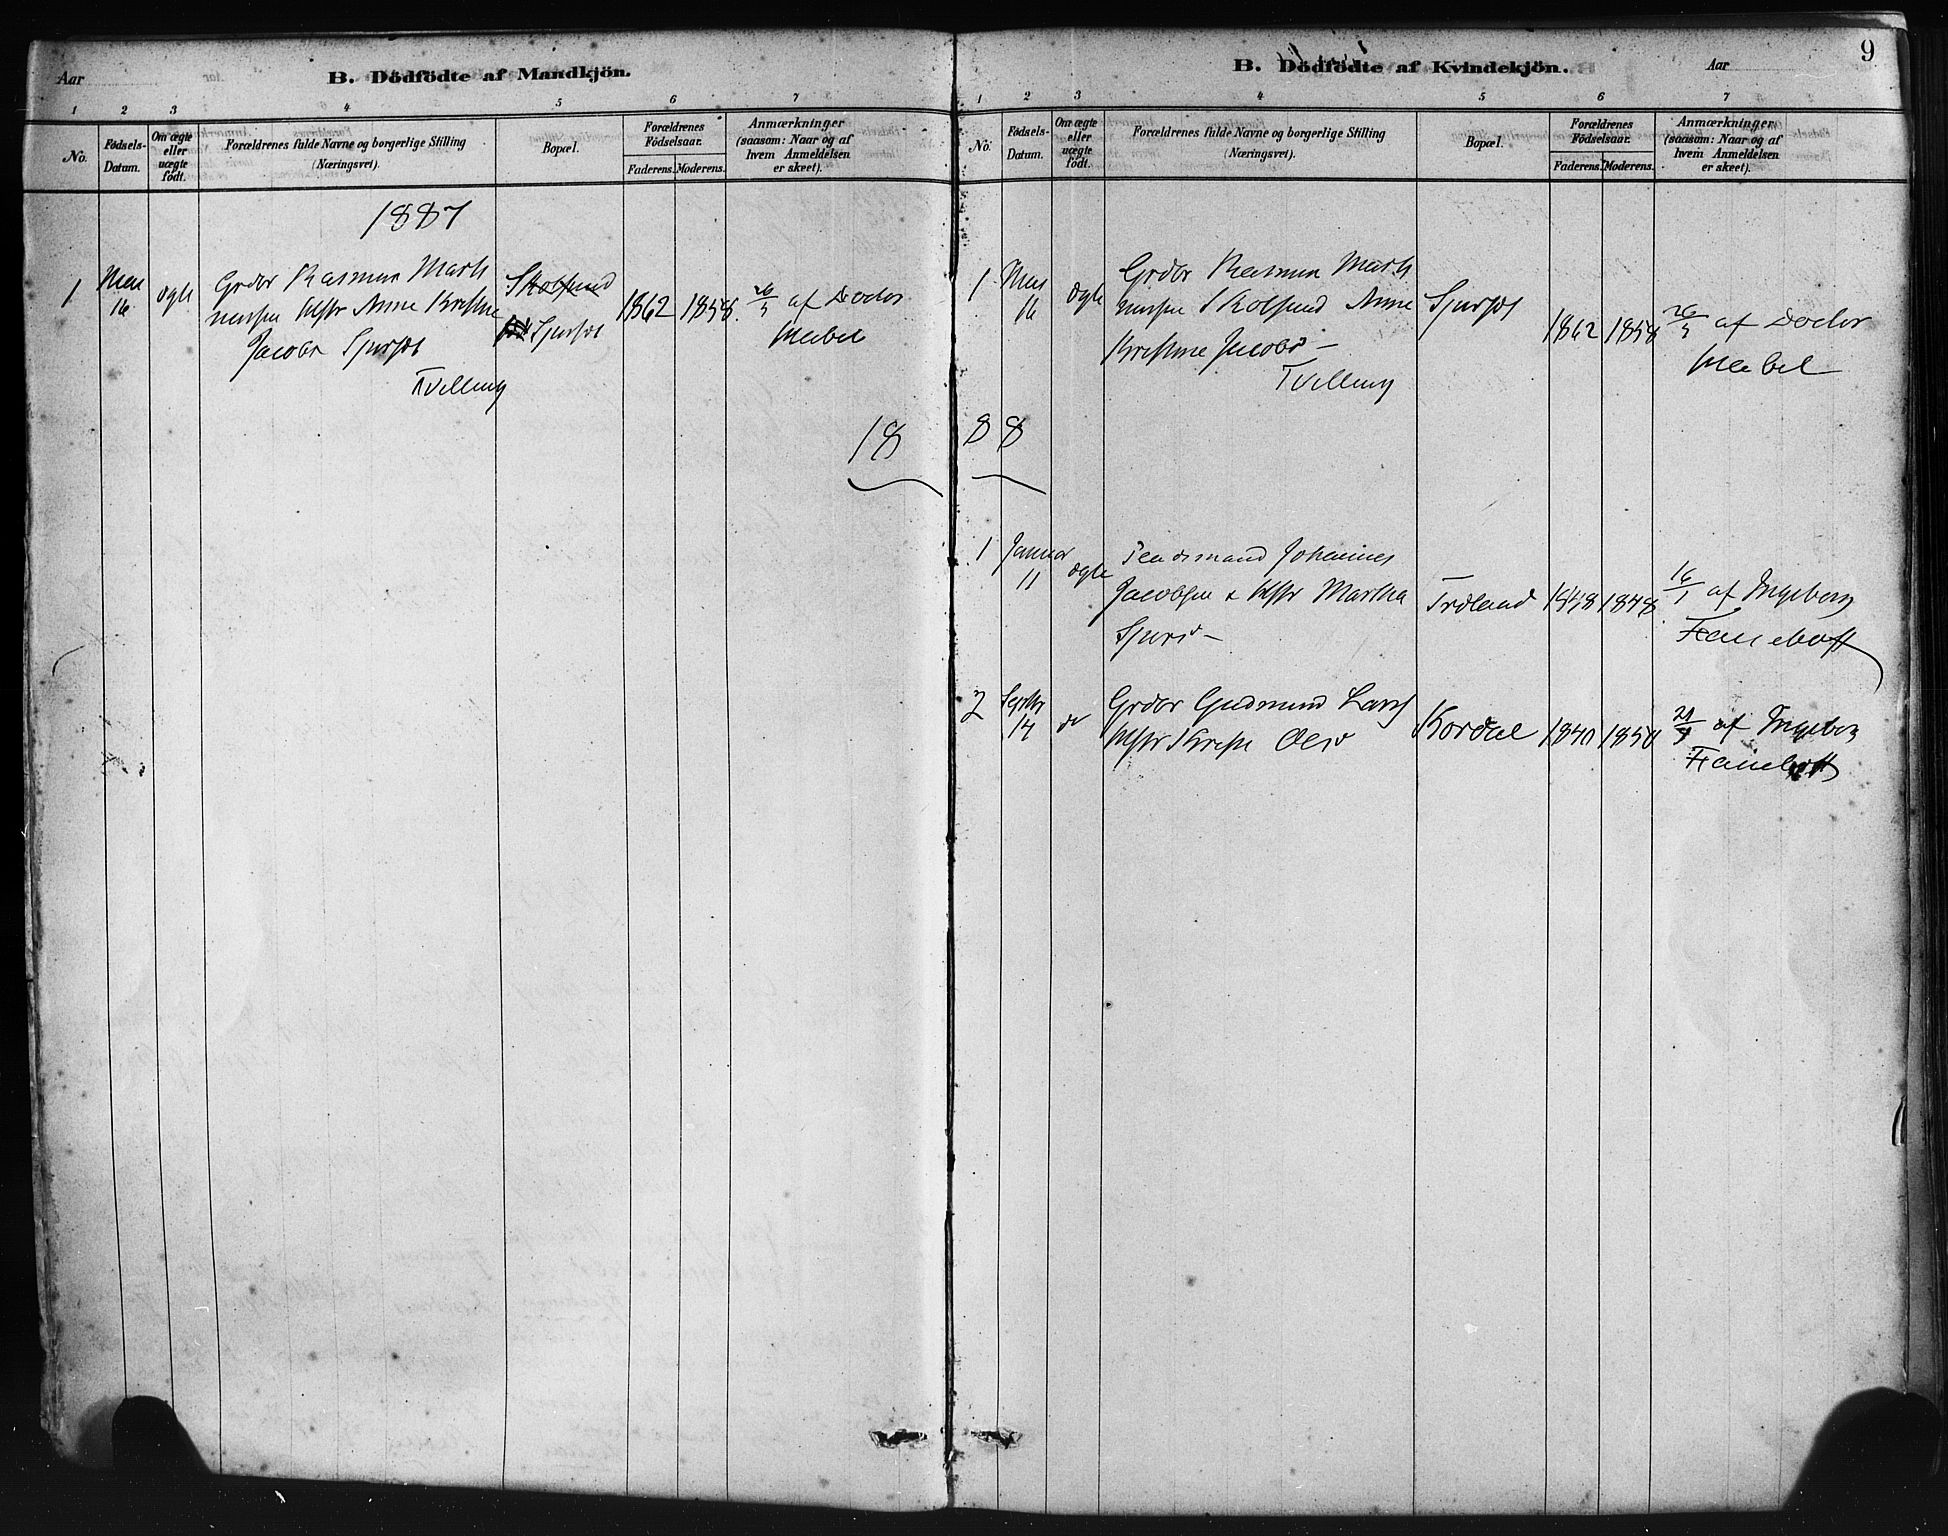 Aar
B. Dödfödte af Mandkjön.
1 2 3 4 5 6 7
No.
Fødsels-Datum.
Om ægte eller uægte født.
Forældrenes fulde Navne og borgerlige Stilling
(Næringsvei).
Bopæl.
Forældrenes Fødselsaar.
Faderens. Moderens.
Anmærkninger
(saasom: Naar og af
hvem Anmeldelsen
er skeet).
1887
1 16 ægte Grdbr Rasmus Mart
Hstr Anne Kristine
Jacobs
Tvilling
Skolsund
1862 1858 26/5 af Doctor
Meibel
18
B. Dödfödte af Kvindekjön.
Aar
9
1 2 3 4 5 6 7
No.
Fødsels-Datum.
Om ægte eller uægte født.
Forældrenes fulde Navne og borgerlige Stilling
(Næringsvei).
Bopæl.
Forældrenes Fødselsaar.
Faderens. Moderens.
Anmærkninger
(saasom: Naar og af
hvem Anmeldelsen
er skeet).
1 16 ægte Grdbr Rasmus Mart
Skolsund Anne
Kristine Jacobs –
Tvilling
1862 1858 26/5 af Doctor
Meibel
88
1 Januar 11 ægte Johannes
Jacobsen & Hstr Martha
Sjurs –
Troland 1848 1848 16/1 af Ingeborg
2 Septbr 14 Grdbr Gudmund Lars
Hstr Oles
Kordal 1840 1850 af Ingeborg